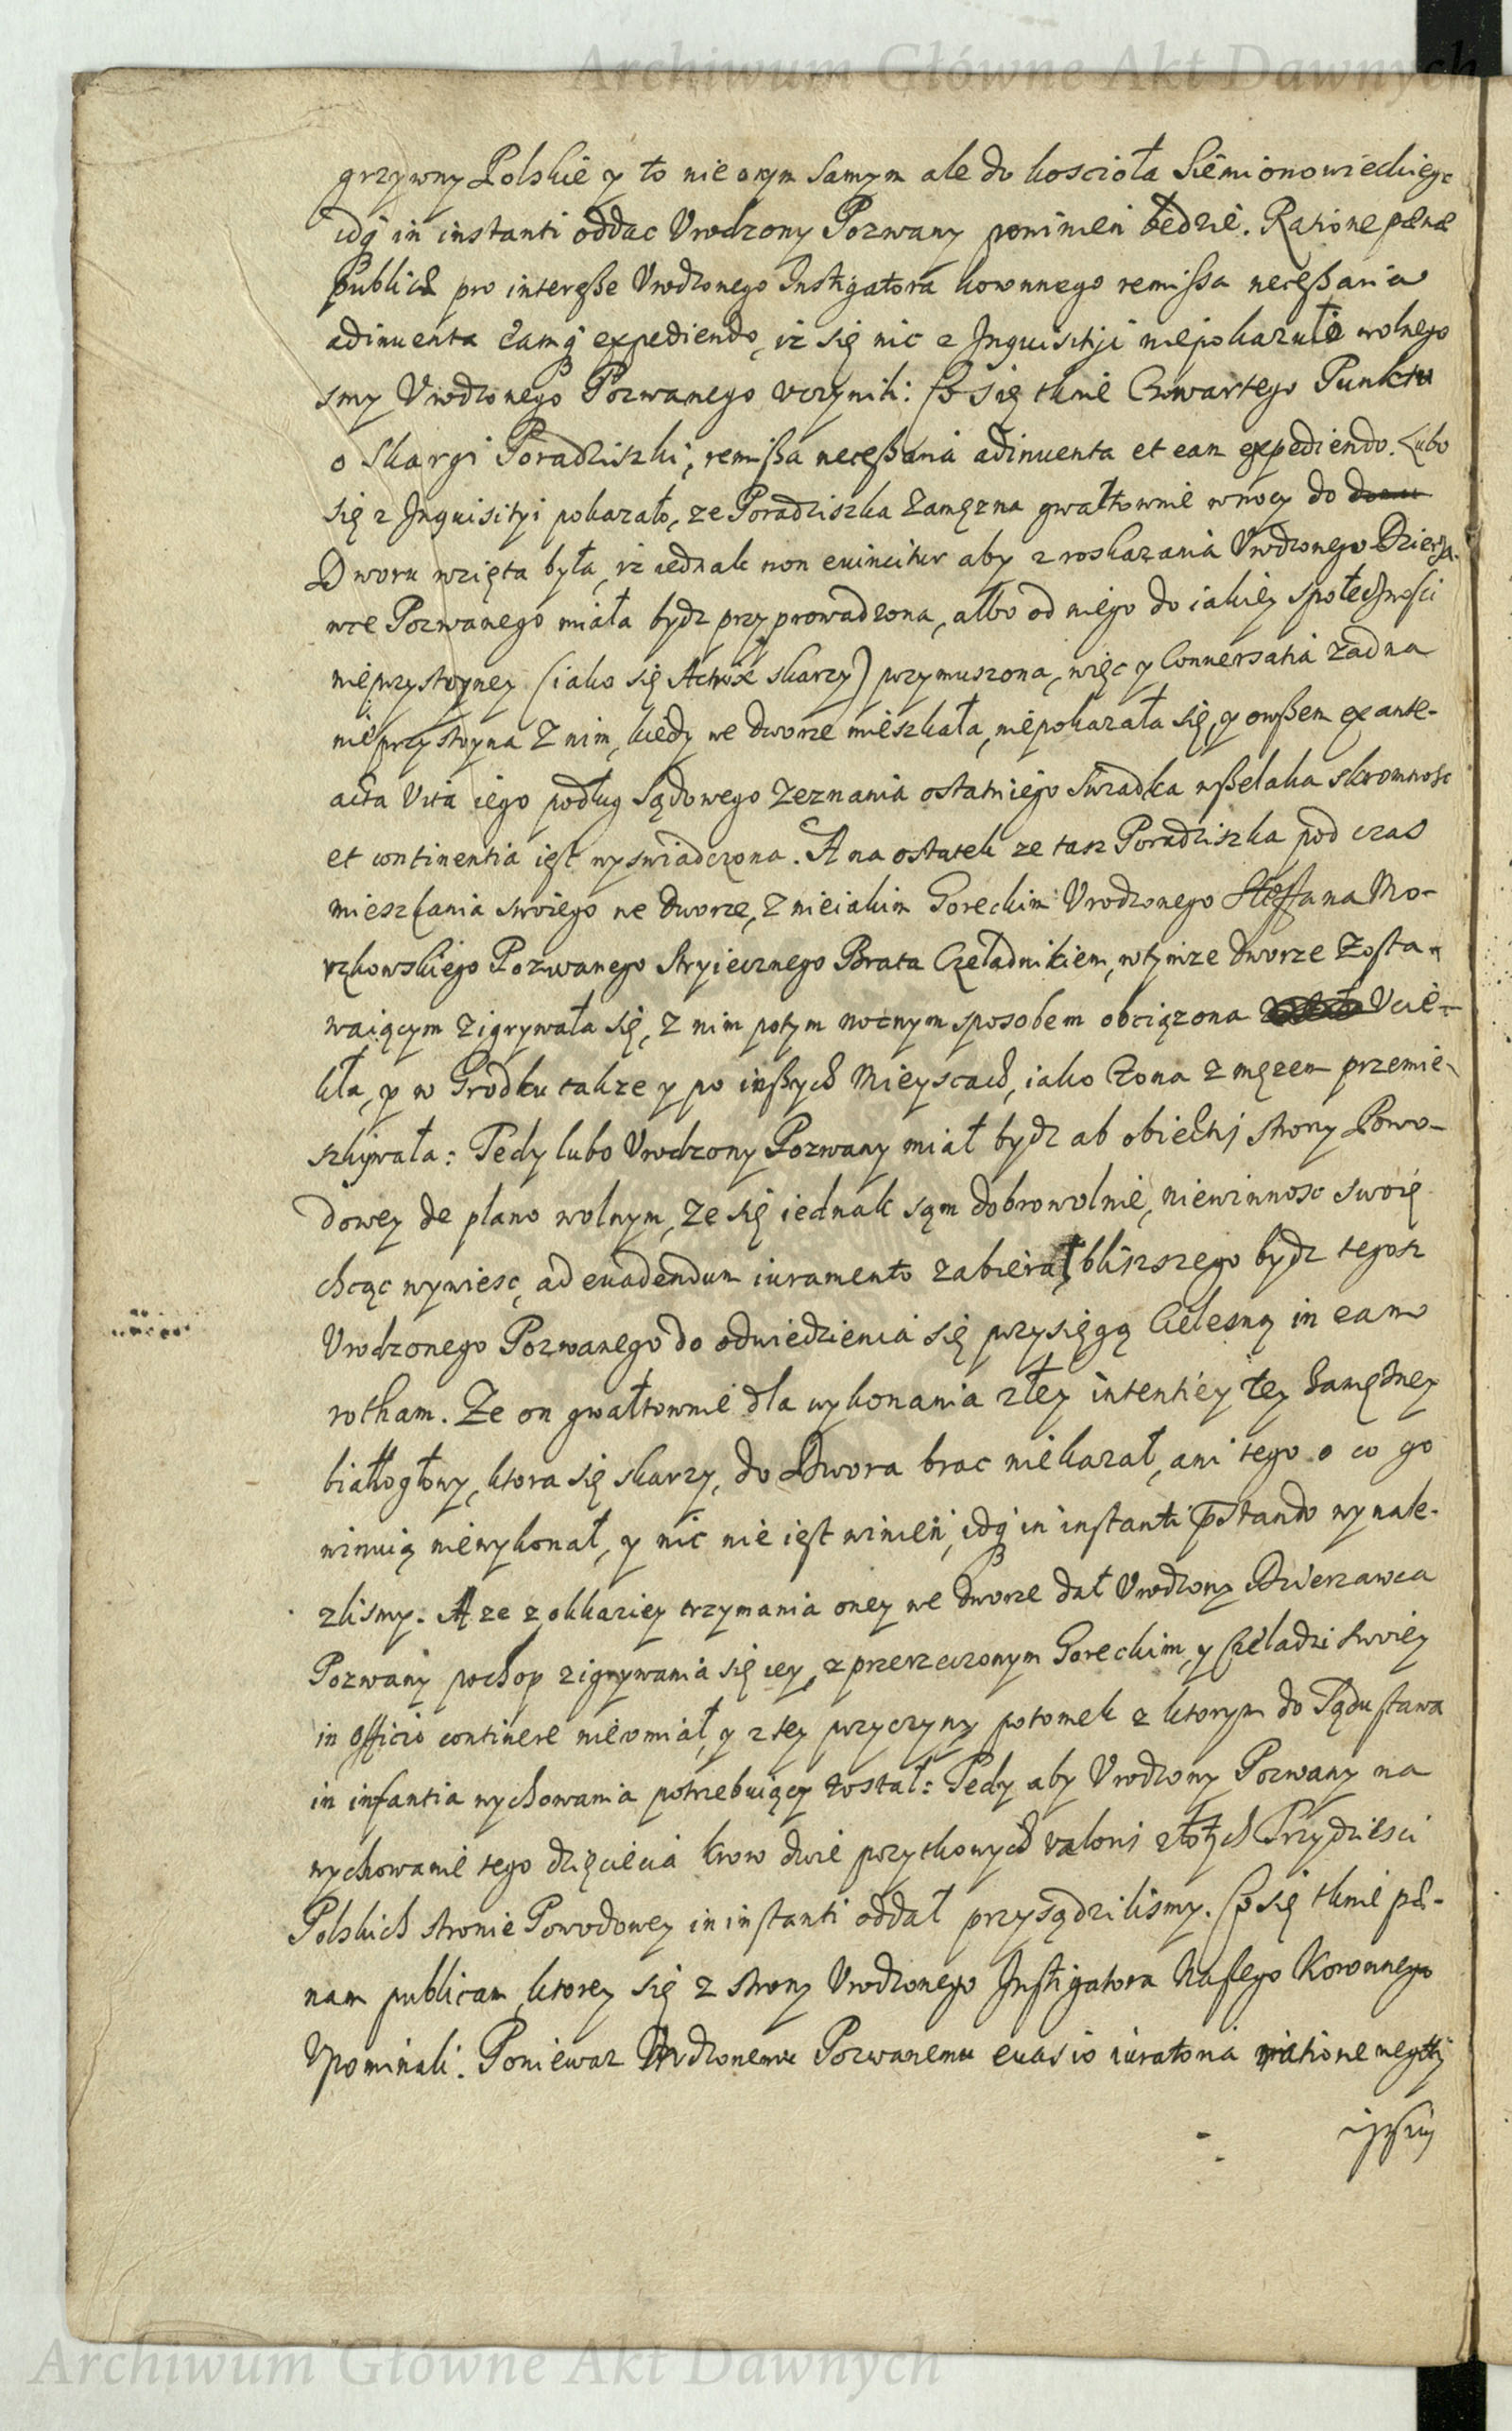 Archiwum Główne Akt Dawnych
grzywny Polskie y to nie onym samym ale do koscioła Siemionowieckiego
idq in instanti oddac Vrodzony Pozwany powinien będzie. Ratione pænæ
publicæ pro interesse Vrodzonego Instigatora koronnego remissa necessaria
adinuenta eamq expediendo, iż się nic z Inquisitji niepokazało wolnego
smy Vrodzonego Pozwanego vczynili: Co się tknie Czwartego Punktu
o skargi Poradziszki, remissa necessaria adinuenta et eam expediendo. Lubo
się z Inquisityi pokazało, ze Poradziszka zamęzna gwałtownie wnocy do domu
Dworu wzięta była, iż iednak non euincitur aby z roskazania Vrodzonego Dzierza-
wce Pozwanego miała bydz przyprowadzona, albo od niego do iakiey społeczności
nieprzystoyney (iako się Actrix skarzy) przymuszona, więc y Conuersatia żadna
nieprzystoyna z nim, kiedy we dworze mieszkała, niepokazała się, y owszem ex ante-
acta vita iego podług sądowego zeznania ostatniego swiadka wszelaka skromnosc
et continentia iest wyswiadczona. A na ostatek ze tasz Poradziszka pod czas
mieszkania swoiego we dworze, z nieiakim Goreckim Vrodzonego Steffana Mo-
rzkowskiego Pozwanego Stryiecznego Brata Czeladnikiem, wtymze dworze zosta-
waiącym zigrywała się, z nim potym nocnym sposobem obciązona Vcie-
kła, y w Grodku takze y po inszych Mieyscach, iako Zona z męzem przemie-
szkiwała: Tedy lubo Vrodzony Pozwany miał bydz ab obiectis strony Powo-
dowey de plano wolnym, ze się iednak sąm dobrowolnie, niewinnosc swoię
chcąc wywiesc, ad euadendum iuramento zabierał, bliszszego bydz tegosz
Vrodzonego Pozwanego do odwiedzienia się przysięgą Cielesną in eam
rotham. Ze on gwałtownie dla wykonania złey intentiey tey zamęzney
białłogłowy, ktora się skarzy, do Dwora brac niekazał, ani tego o co go
winuią niewykonał, y nic nie iest winien, idq in instanti pstando wynale-
zlismy. A ze z okkaziey trzymania oney we dworze dał Vrodzony Dzierzawca
Pozwany pochop zigrywania się iey, z przerzeczonym Goreckim, y Czeladzi swoiey
in officio continere nieumiał, y z tey przyczyny potomek z ktorym do Sądu stawa
in infantia wychowania potrzebuiący został: Tedy aby Vrodzony Pozwany na
wychowanie tego dzięciecia krow dwie pozytkowych valoris złotych Trzydziesci
Polskich stronie Powodowey in instanti oddał przysądzilismy. Co się tknie pæ-
nam publicam, ktorey się z strony Vrodzonego Instigatora Naszego Koronnego
Vpominali. Poniewaz Vrodzonemu Pozwanemu euasio iuratoria ratione negotij
ipsius
Archiwum Główne Akt Dawnych